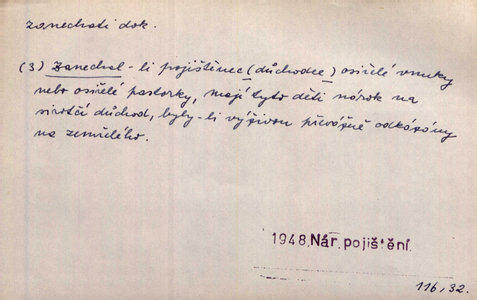 zanechati dok.
(3) Zanechal-li pojištěnec (důchodce) osiřelé vnuky
nebo osiřelé pastorky, mají tyto děti nárok na
sirotčí důchod, byly-li výživou převážně odkázány
na zemřelého.
1948, Nár. pojištění.
116, 32.